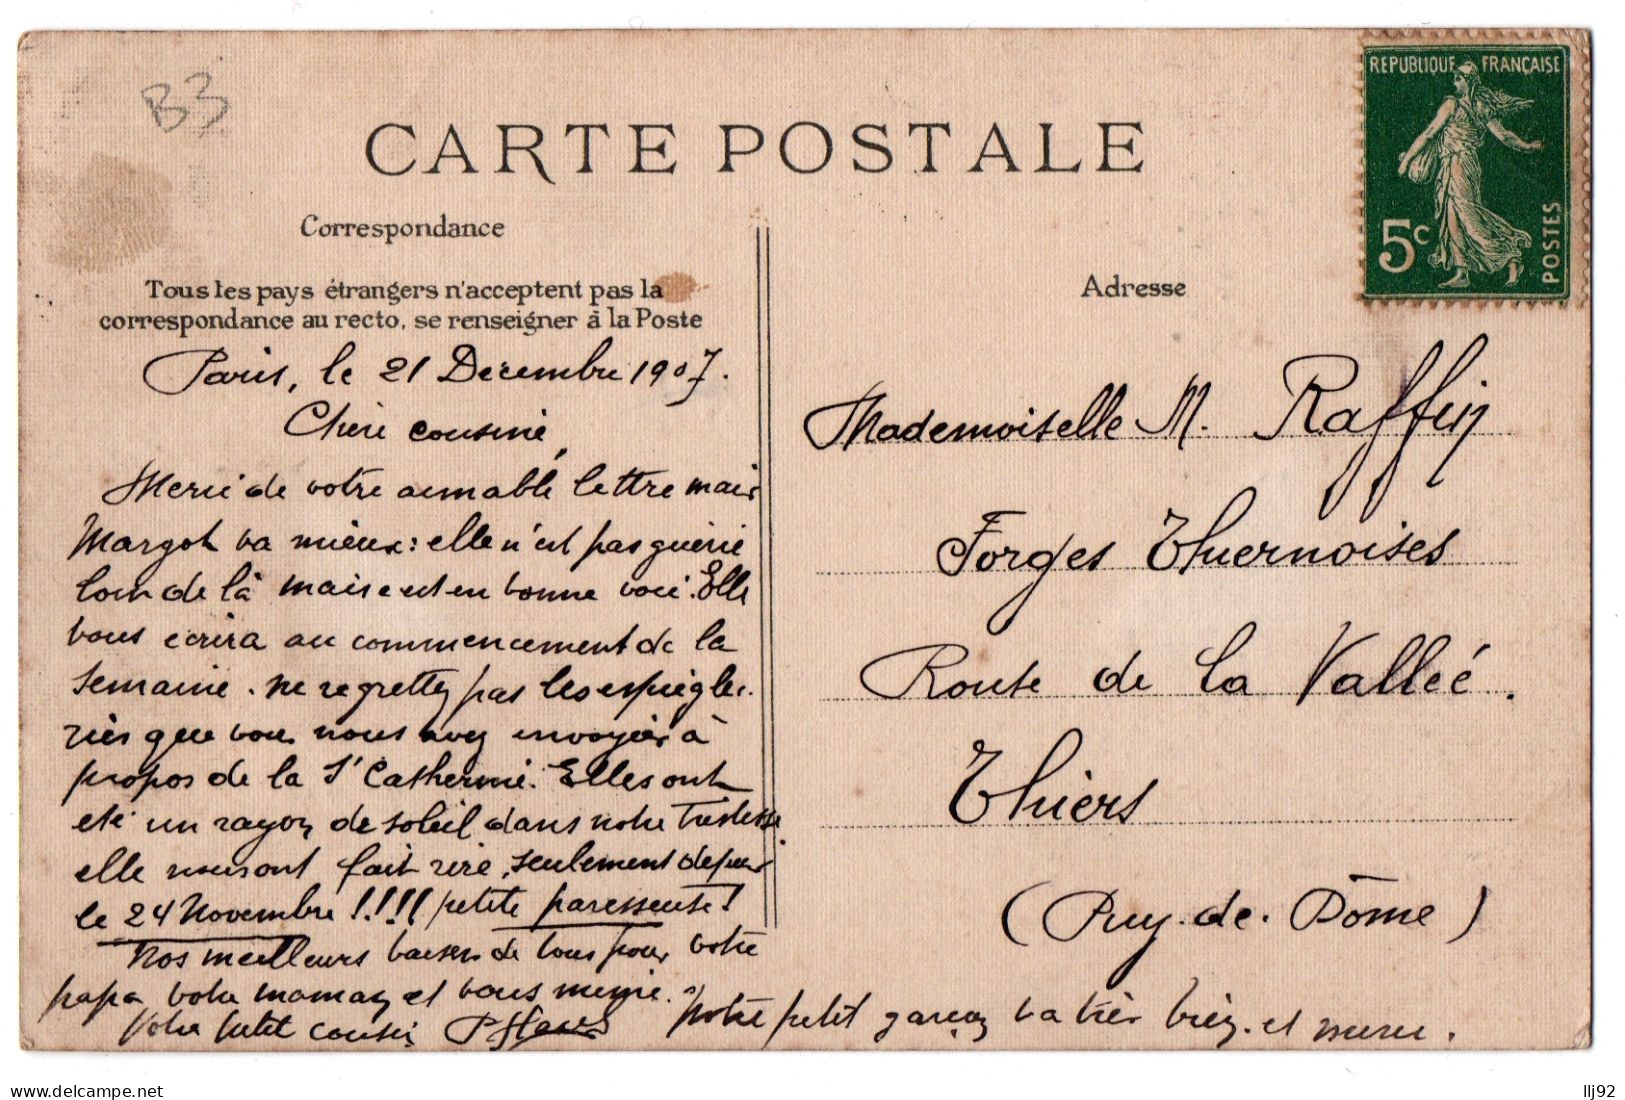 B3
CARTE POSTALE
REPUBLIQUE FRANÇAISE
5c
POSTES
Correspondance
Tous les pays étrangers n'acceptent pas la
correspondance au recto, se renseigner à la Poste
Paris, le 21 Décembre 1907.
Chère cousine,
Merci de votre aimable lettre mais
Margot va mieux : elle n'est pas guérie
loin de là mais est en bonne voie. Elle
vous écrira au commencement de la
semaine. ne regrettez pas les espiègle-
ries que vous nous avez envoyées à
propos de la St Catherine. Elles ont
été un rayon de soleil dans notre tristesse
elle nous ont fait rire, seulement depuis
le 24 Novembre !!!!! petite paresseuse !
Nos meilleurs baisers de tous pour votre
papa votre maman et vous même.
Votre petit cousin
Notre petit garçon va très bien. et merci.
Adresse
Mademoiselle M. Raffin
Forges Thiernoises
Route de la Vallée.
Thiers
(Puy-de-Dôme)
llj92